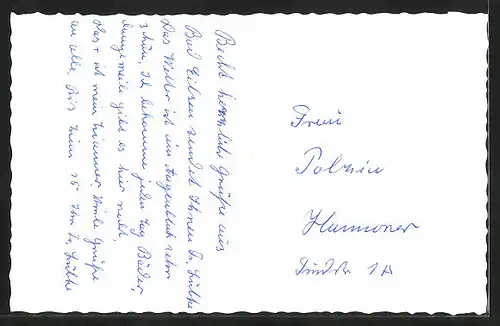 Recht herzliche Grüße aus
Bad Eilsen sendet Ihnen Fr. Lüthe
Das Wetter ist im Augenblick sehr
schön. Ich bekomme jeden Tag Bäder,
gibt es hier nicht,
ist mein Zimmer. Viele Grüße
an alle. Bis zum 25 Ihre Fr. Lüthe
Frau
Polzin
Hannover
1A